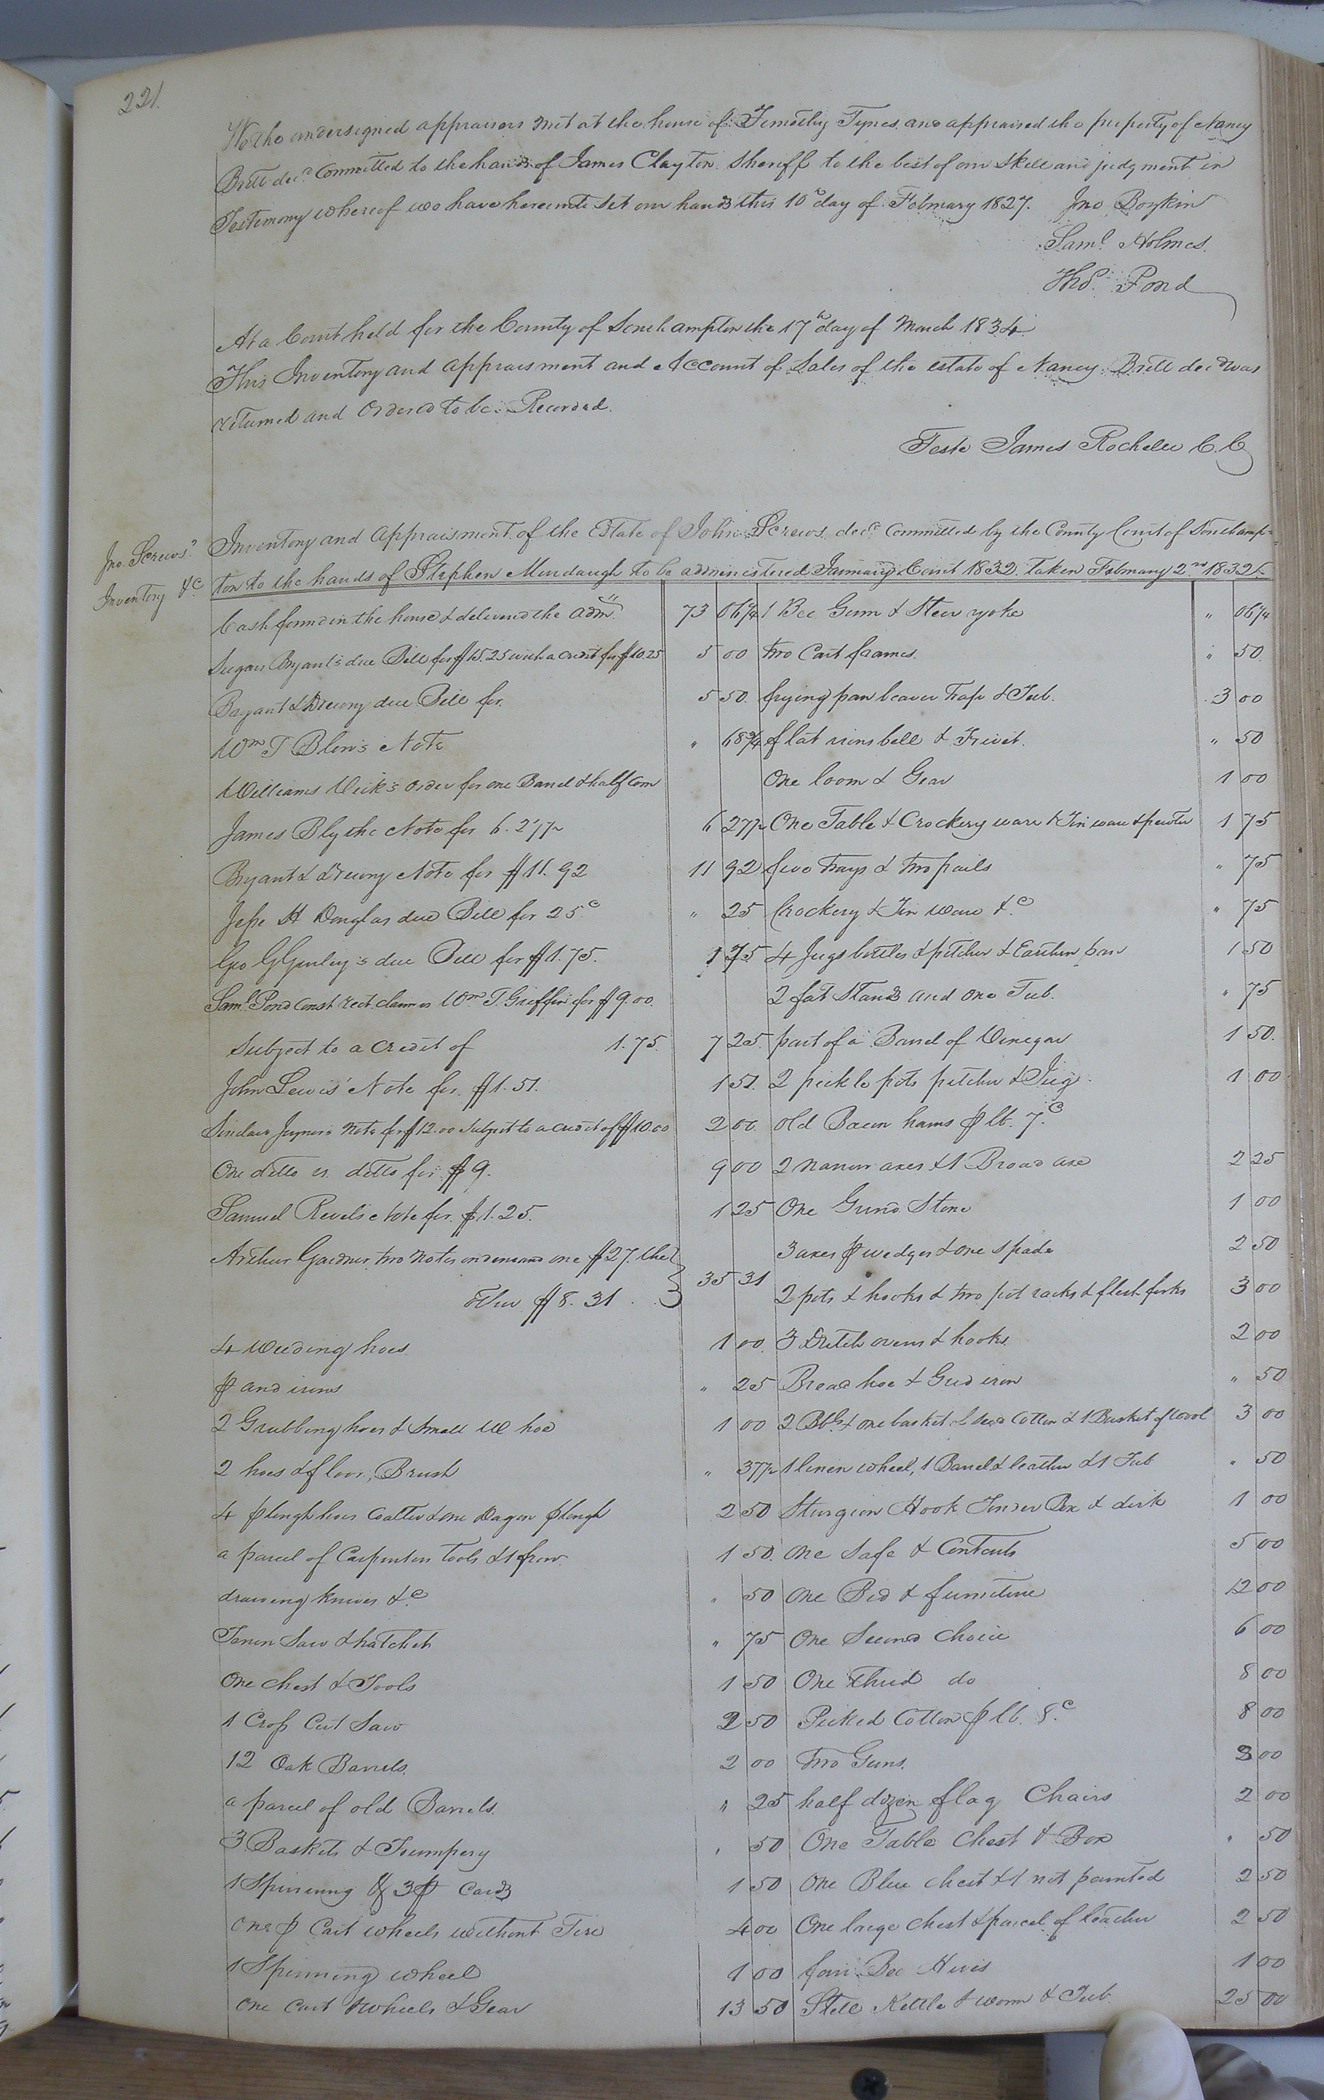 221.
We the undersigned appraisers met at the house of Timothy Tynes and appraised the property of Nancy
Britt decd. Committed to the hands of James Clayton Sheriff to the best of our Skill and judgment in
Testimony whereof we have hereunto Set our hands this 10th day of February 1827. Jno Boykin
Saml. Holmes.
Thos. Pond
At a Court held for the County of Southampton the 17th day of March 1834
This Inventory and appraisment and Account of Sales of the estate of Nancy Britt decd was
returned and Ordered to be Recorded.
Teste James Rochelle C.C
Jno. Screws'
Inventory &c
Inventory and Appraisment of the Estate of John Screws decd. Committed by the County Court of Southamp-
ton to the hands of Stephen Murdaugh to be administered January Court 1832. taken February 2nd 1832.
Cash found in the house & delivered the admr. 73 06¼
Bryant's due Bill for $15.25 with a credit for $10.25 5 00
Bryant & Drewry due Bill for 5 50
Wm T Blow's Note " 68¾
Williams order for one Barrel & half Corn
James Blythe Note for 6.27½ 6 27½
Bryant & Drewry Note for $11.92 11 92
Jesse H Douglas due Bill for 25c " 25
Geo G Gurley's due Bill for $1.75. 1 75
Saml. Pond Const rect. claim on Wm T. Griffin for $9.00.
Subject to a credit of 1.75. 7 25
John Lewis' Note for $1.51. 1 51
Sinclair Joyner's Note for $12.00 Subject to a credit of $10.00 2 00
One ditto vs. ditto for $9. 9 00
Samuel Revels Note for $1.25. 1 25
Arthur Gardner two Notes on demand one $27. the
Other $8.31 35 31
4 Weeding hoes 1 00
p and irons " 25
2 Grubbing hoes & Small W hoe 1 00
2 hoes & floor Brush " 37½
4 plough hoes Coalter & one Dagon plough 2 50
a parcel of Carpenters Tools & 1 frow 1 50
drawing knives &c " 50
Tenon Saw & hatchet " 75
One chest & Tools 1 50
1 Cross Cut Saw 2 50
12 Oak Barrels. 2 00
a parcel of old Barrels. " 25
3 Baskets & Trumpery " 50
1 Spinning & 3 p Cards 1 50
One p Cart wheels without Tire 4 00
1 Spinning wheel 1 00
One Cart & wheels & Gear 13 50
1 Bee Gum & Steer yoke " 06¼
two Cart frames " 50
frying pan beaver Trap & Tub. 3 00
flat irons bell & Trivet. " 50
One loom & Gear 1 00
One Table & Crockery ware & Tin ware & pewter 1 75
five trays & two pails " 75
Crockery & Tin Ware &c " 75
4 Jugs bottles & pitcher & Earthen pan 1 50
2 fat Stands and One Tub. " 75
part of a Barrel of Vinegar 1 50.
2 pickle pots pitcher & Jug 1 00
old Bacon hams p lb. 7c
2 narrow axes & 1 Broad axe 2 25
One Grind Stone 1 00
3 axes p wedges & one Spade 2 50
2 pots & hooks & two pot racks & flesh forks 3 00
3 Dutch ovens & hooks 2 00
Broad hoe & Grid iron " 50
2 Bbls & one basket of Seed Cotton & 1 Basket of wool 3 00
1 linen wheel, 1 Barrel & leather & 1 Tub " 50
Sturgeon Hook Tinder Box & dirk 1 00
One Safe & Contents 5 00
One Bed & furniture 12 00
One Second choice 6 00
One Third do 8 00
Picked Cotton p lb. 8c 8 00
two Guns. 3 00
half dozen flag Chairs 2 00
One Table Chest & Box " 50
One Blue chest & 1 not painted 2 50
One large chest & parcel of leather 2 50
four Bee Hives 1 00
Still Kettle & worm & Tub 25 00